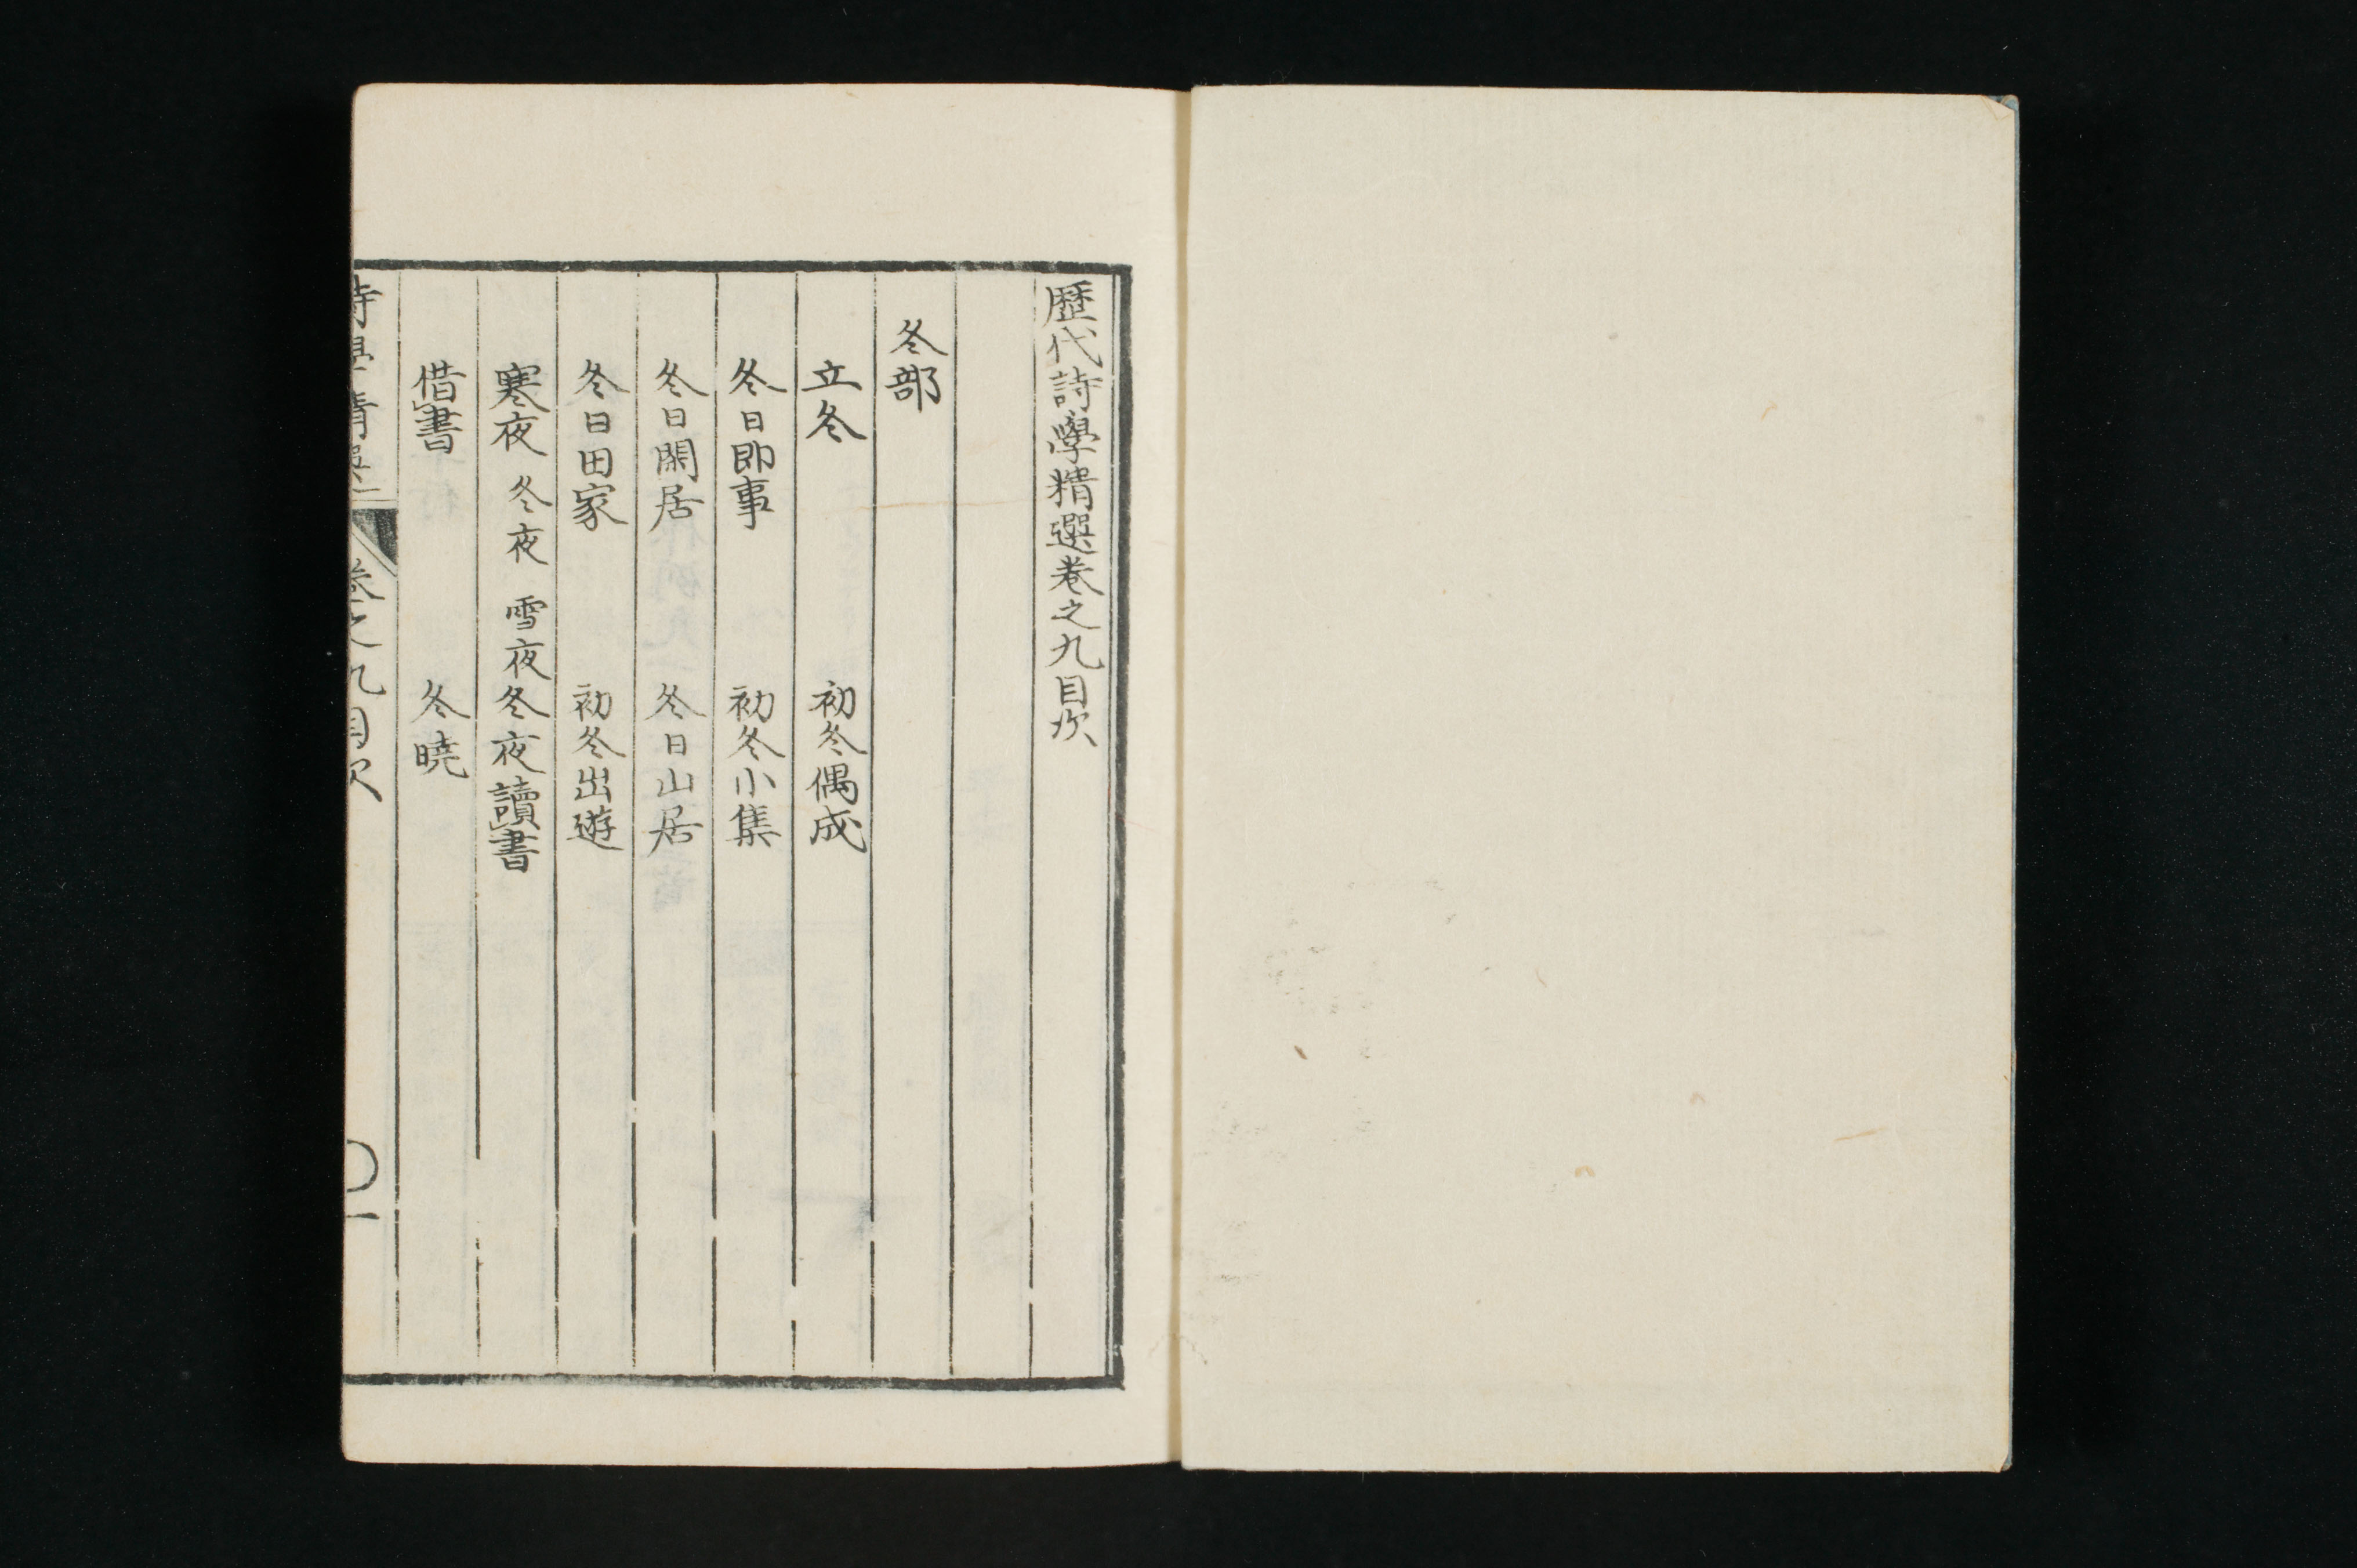 歷代詩學精選卷之九目次
冬部
立冬　初冬偶成
冬日即事　初冬小集
冬日閑居　冬日山居
冬日田家　初冬出遊
寒夜　冬夜　雪夜　冬夜讀書
借書　冬曉
詩學精選　卷之九目次　一